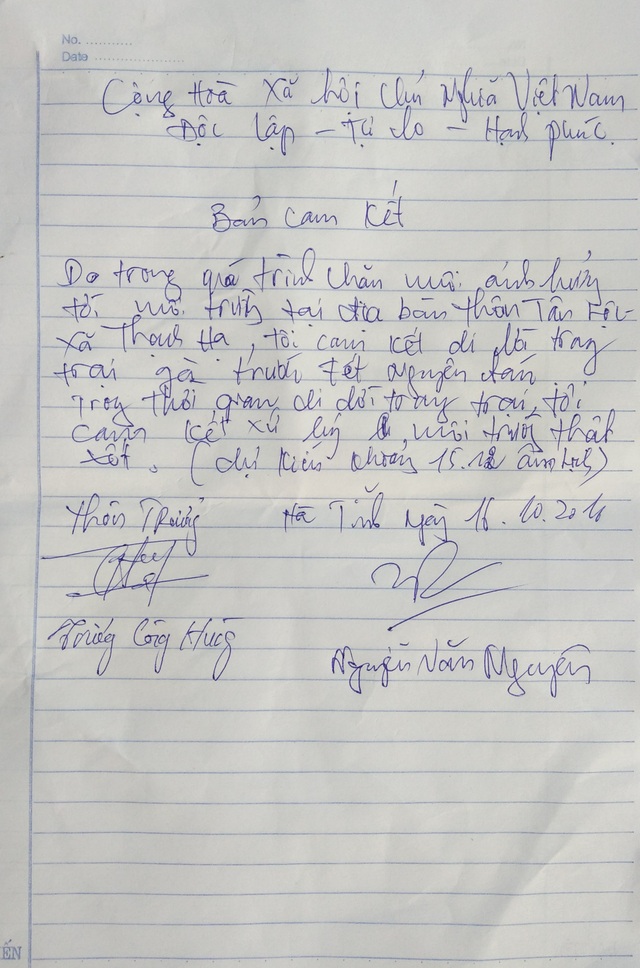 No. ...........
Date .....................
Cộng Hoà Xã hội Chủ Nghĩa Việt Nam
Độc lập - Tự do - Hạnh phúc.
Bản cam kết
Do trong quá trình chăn nuôi ảnh hưởng
tới môi trường tại địa bàn thôn Tân Lộc -
xã Thạch Hạ, tôi cam kết di dời trang
trại gà trước tết nguyên đán
Trong thời gian di dời trang trại, tôi
cam kết xử lý môi trường thật
tốt. (dự kiến khoảng 15.12 âm lịch)
Thôn Trưởng
Hà Tĩnh ngày 16.10.2016
Trương Công Hùng
Nguyễn Văn Nguyên
ẾN